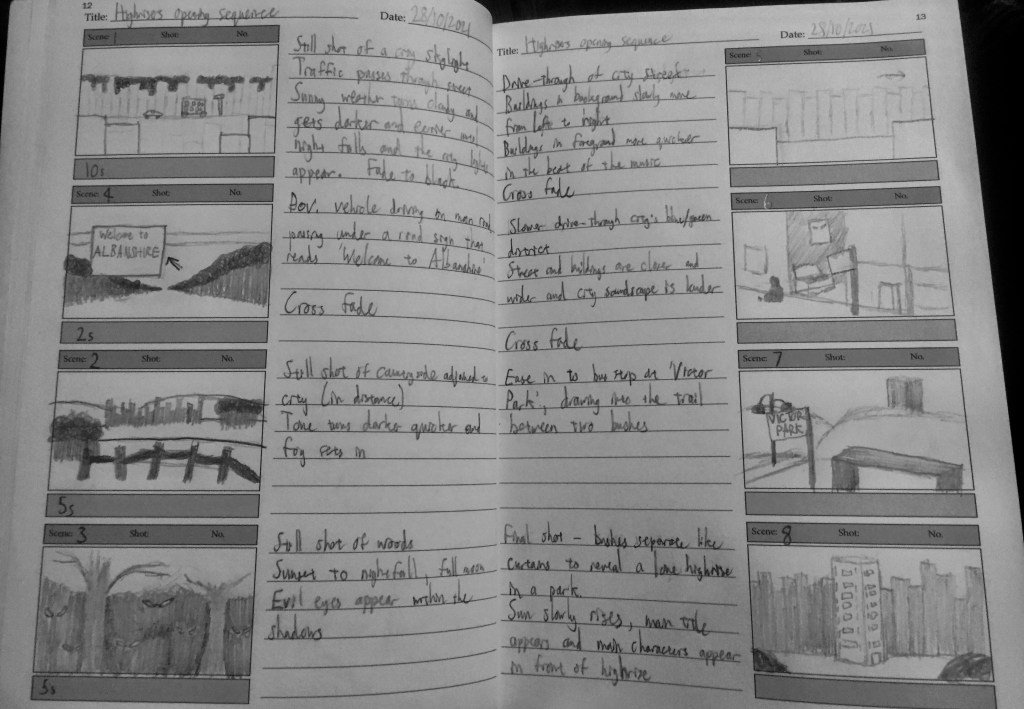 12
Title: Highrises opening sequence
Date: 28/10/2021
Scene: 1 Shot: No.
10s
Still shot of a city skylight
Traffic passes through
Sunny weather turns cloudy and
gets darker and until
night falls and the city lights
appear. Fade to black
Scene: 4 Shot: No.
Welcome to
ALBANSHIRE
2s
P.O.V. vehicle driving on main road
passing under a road sign that
reads 'Welcome to Albanshire'
Cross fade
Scene: 2 Shot: No.
5s
Still shot of countryside adjacent to
city (in distance)
Tone turns darker quicker and
fog sets in
Scene: 3 Shot: No.
5s
Still shot of woods
Sunset to nightfall, full moon
Evil eyes appear within the
shadows
13
Title: Highrises opening sequence
Date: 28/10/2021
Drive-through of city street
Buildings in background slowly move
from left to right
Buildings in foreground move quicker
in the beat of the music
Cross fade
Scene: 5 Shot: No.
Slower drive-through city's blue/green
district
Street and buildings are closer and
wider and city soundscape is louder
Cross fade
Scene: 6 Shot: No.
Ease in to bus stop at 'Victor
Park', drawing into the trail
between two bushes
Scene: 7 Shot: No.
VICTOR
PARK
Final shot – bushes separate like
curtains to reveal a lone highrise
in a park
Sun slowly rises, main title
appears and main characters appear
in front of highrise
Scene: 8 Shot: No.